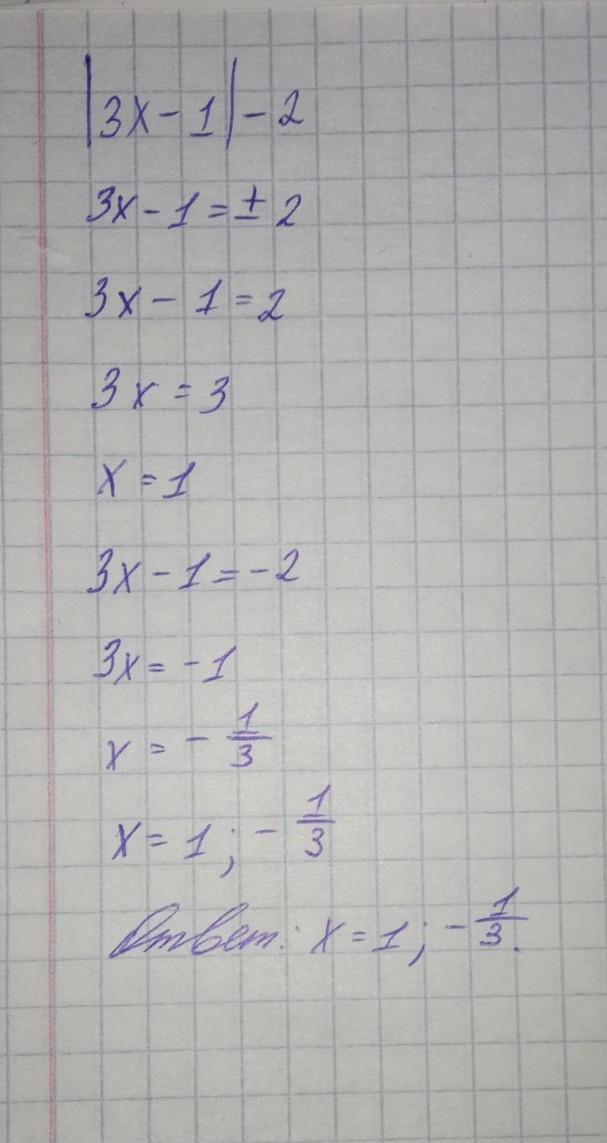 |3x - 1| - 2
3x - 1 = ± 2
3x - 1 = 2
3x = 3
x = 1
3x - 1 = -2
3x = -1
x = - 1/3
x = 1; - 1/3
Ответ: x = 1; - 1/3.